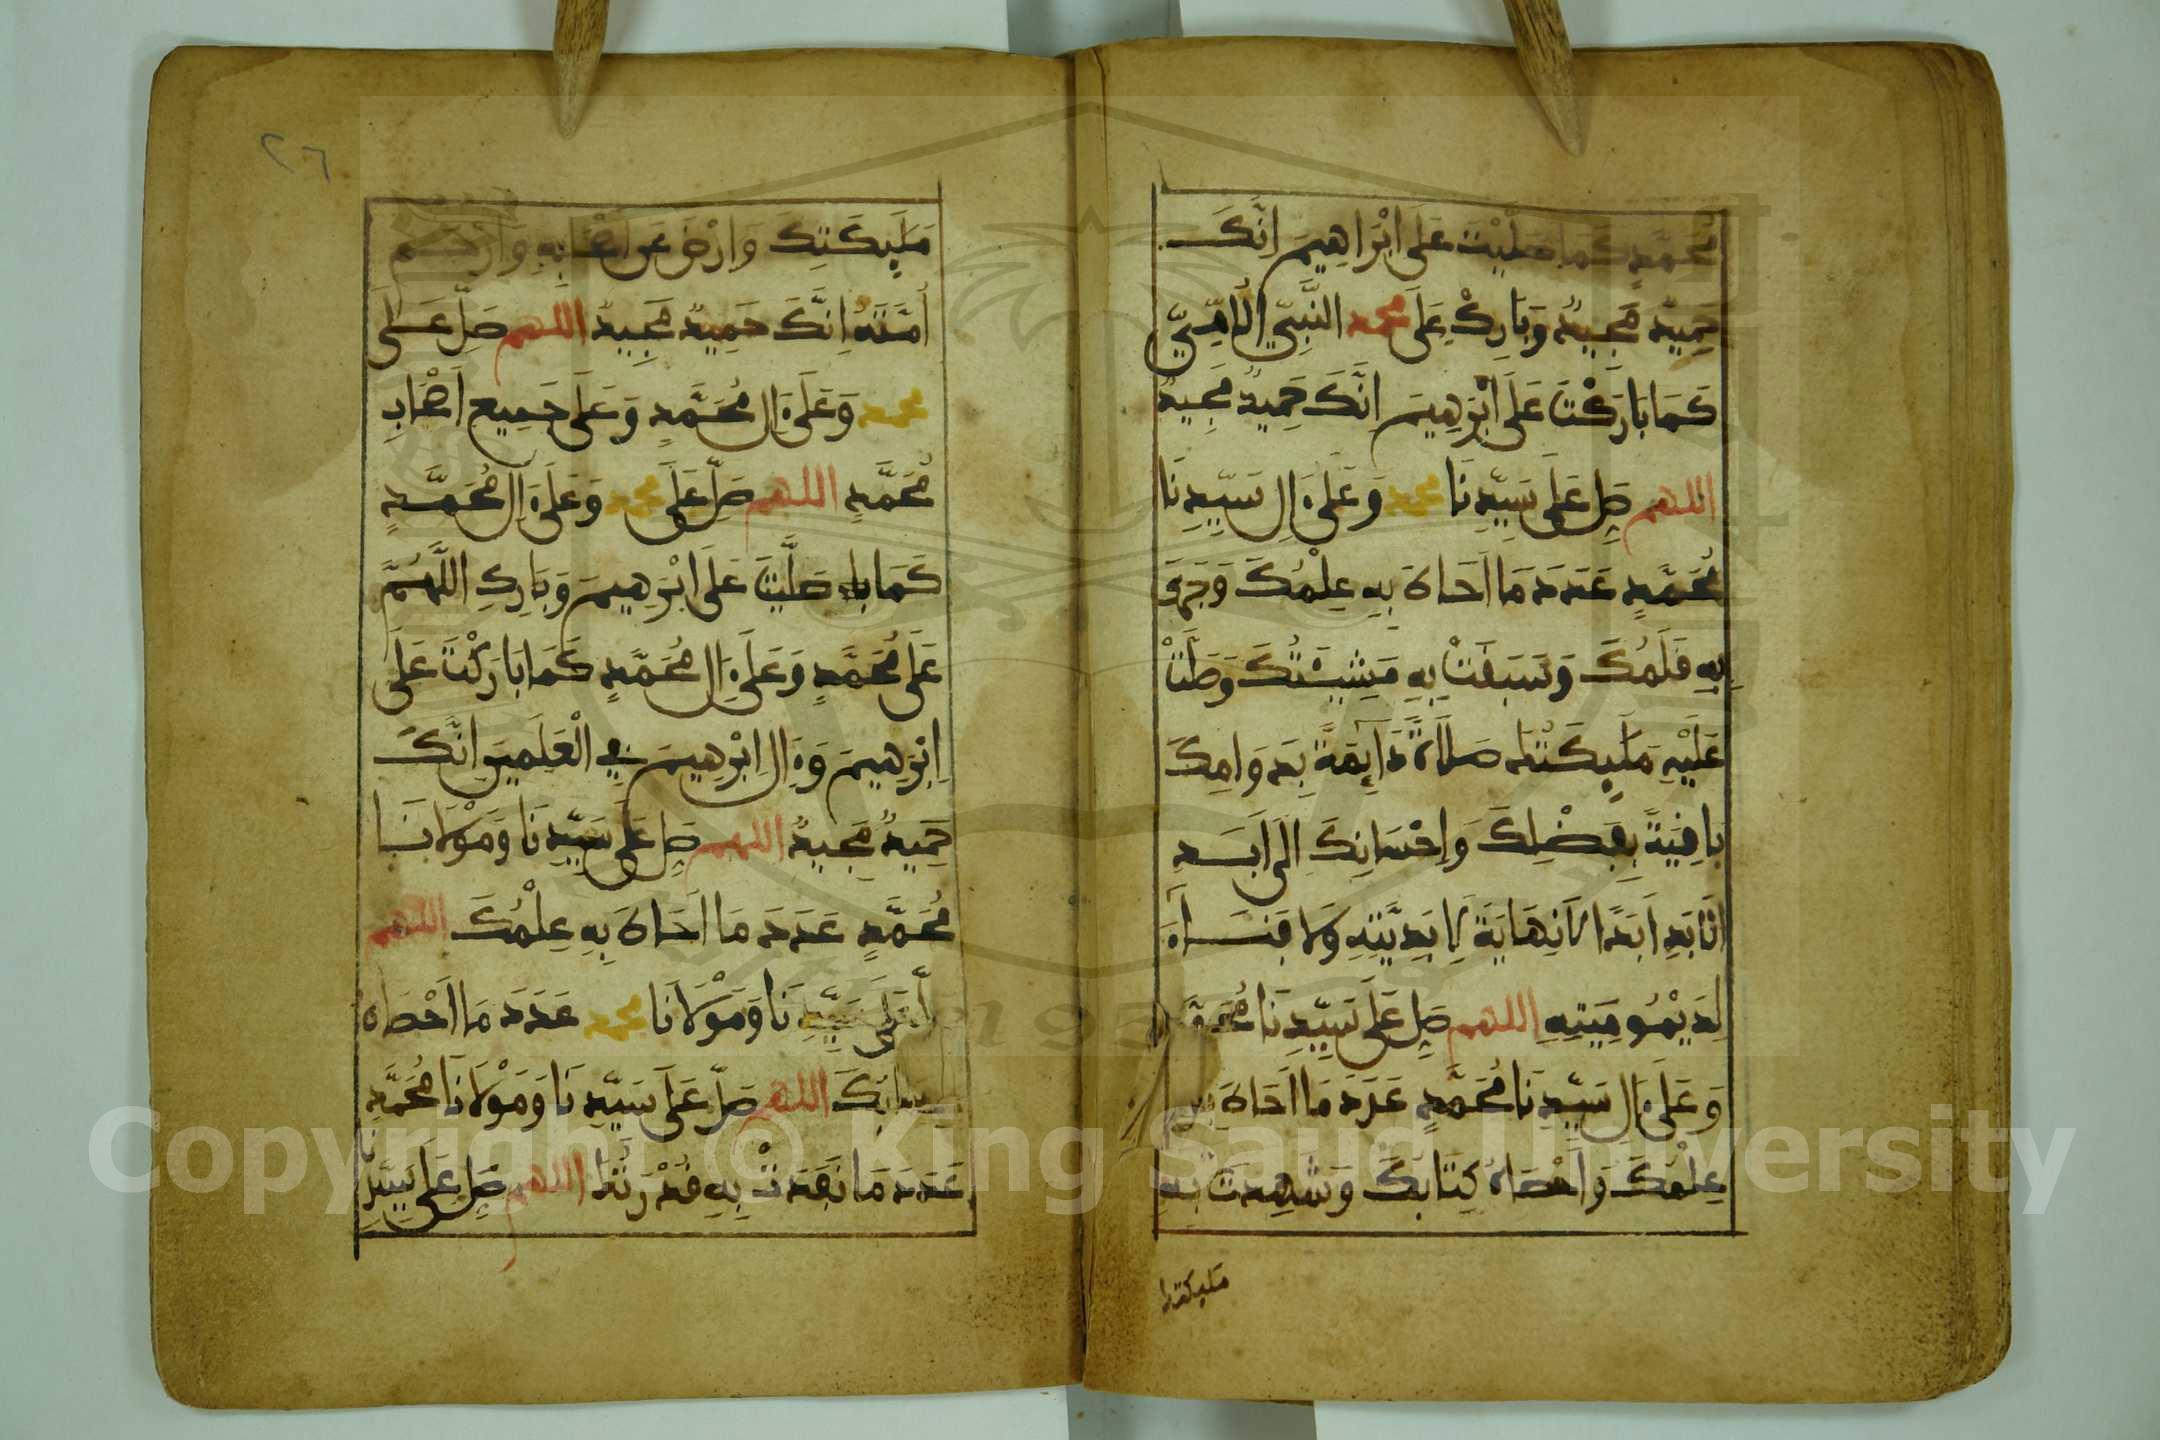 محمد كما صليت على ابراهيم انك
حميد مجيد وبارك على محمد النبي الامي
كما باركت على ابرهيم انك حميد مجيد
اللهم صل على سيدنا محمد وعلى ءال سيدنا
محمد عدد ما احاط به علمك وجرى
به قلمك وسبقت به مشيئتك وصلت
عليه مليكتك صلاة دائمة بدوامك
باقية بفضلك واحسانك الى ابد
الابد ابدا لا نهاية لابديته ولا فناء
لديموميته اللهم صل على سيدنا محمد
وعلى ءال سيدنا محمد عدد ما احاط به
علمك واحصاه كتابك وشهدت به
مليكتك
٢٦
مليكتك وارض عن اصحابه وارحم
امته انك حميد مجيد اللهم صل على
محمد وعلى ءال محمد وعلى جميع اصحاب
محمد اللهم صل على محمد وعلى ءال محمد
كما صليت على ابرهيم وبارك اللهم
على محمد وعلى ءال محمد كما باركت على
ابرهيم وءال ابرهيم في العلمين انك
حميد مجيد اللهم صل على سيدنا ومولانا
محمد عدد ما احاط به علمك اللهم
صل على سيدنا ومولانا محمد عدد ما احصاه
كتابك اللهم صل على سيدنا ومولانا محمد
عدد ما نفدت به قدرتك اللهم صل على سيدنا
Copyright © King Saud University